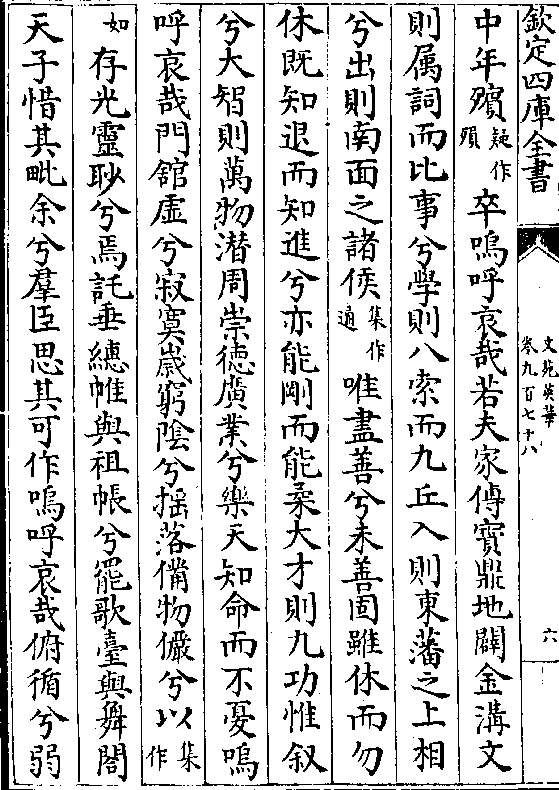 欽定四庫全書
文苑英華
卷九百七十八
六
中年殯疑作殞卒嗚呼哀哉若夫家傳寳鼎地闢金溝文
則属詞而比事兮學則八索而九丘入則東藩之上相
兮出則南面之諸侯集作逌唯盡善兮未善固雖休而勿
休既知退而知進兮亦能剛而能柔大才則九功惟叙
兮大智則萬物潛周崇徳廣業兮樂天知命而不憂嗚
呼哀哉門舘虚兮寂寞嵗窮隂兮揺落備物儼兮以集作
如存光靈眇兮焉託垂繐帷與祖帳兮罷歌臺與舞閣
天子惜其毗余兮羣臣思其可作嗚呼哀哉俯循兮弱